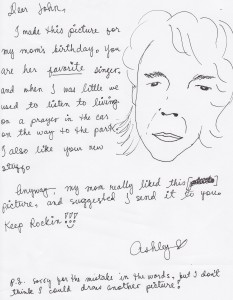 Dear John,
I made this picture for
my mom's birthday. You
are her favorite singer,
and when I was little we
used to listen to living
on a prayer in the car
on the way to the park.
I also like your new
stuff.
Anyway, my mom really liked this
picture, and suggested I send it to you.
Keep Rockin!!!
Ashley
P.S. sorry for the mistake in the words, but I don't
think I could draw another picture!